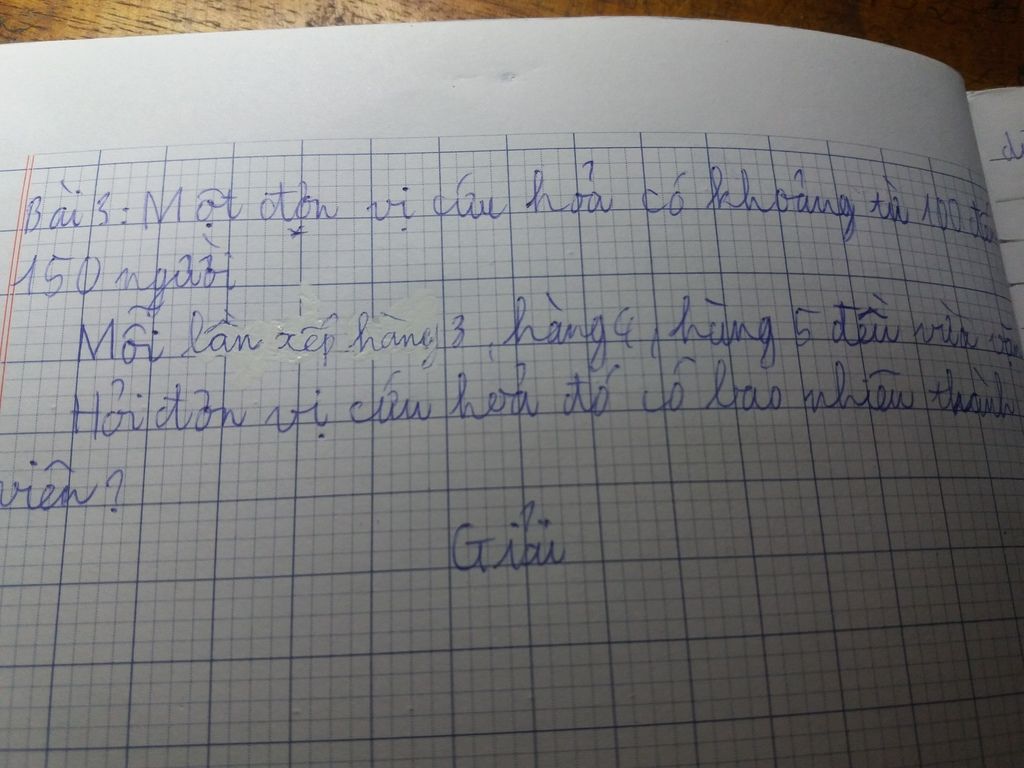 Bài 3: Một đơn vị cứu hỏa có khoảng từ 100 đến
150 người
Mỗi lần xếp hàng 3, hàng 4, hàng 5 đều vừa
Hỏi đơn vị cứu hỏa đó có bao nhiêu thành
viên?
Giải